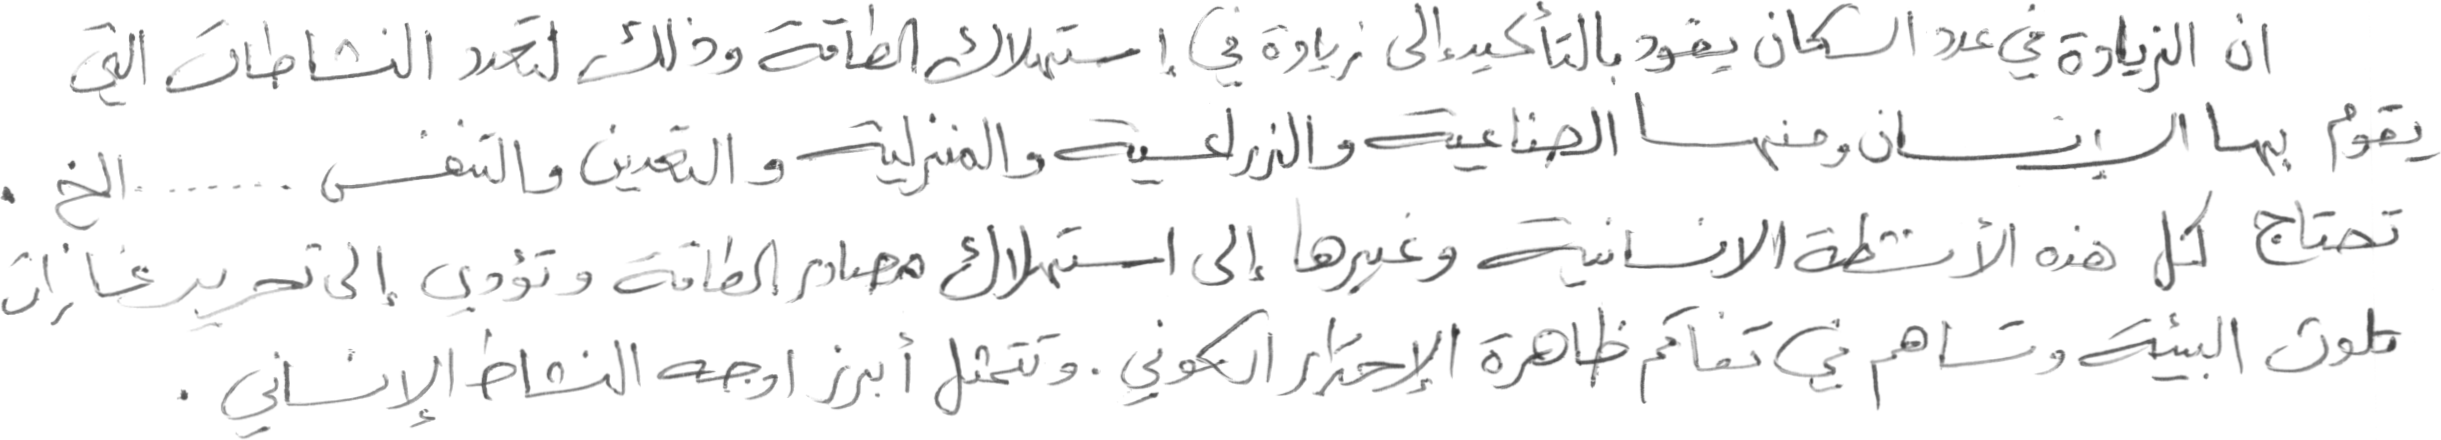 ان الزيادة في عدد السكان يقود بالتأكيد إلى زيادة في إستهلاك الطاقة وذلك لتعدد النشاطات التي
يقوم بها الإنسان ومنها الصناعية والزراعية والمنزلية والتعدين والتنفس ........ الخ .
تحتاج كل هذه الأنشطة الانسانية وغيرها إلى استهلاك مصادر الطاقة وتؤدي إلى تحرير غازات
ملوث البيئة وتساهم في تفاكم ظاهرة الإحترار الكوني . وتتمثل أبرز اوجه النشاط الإنساني .